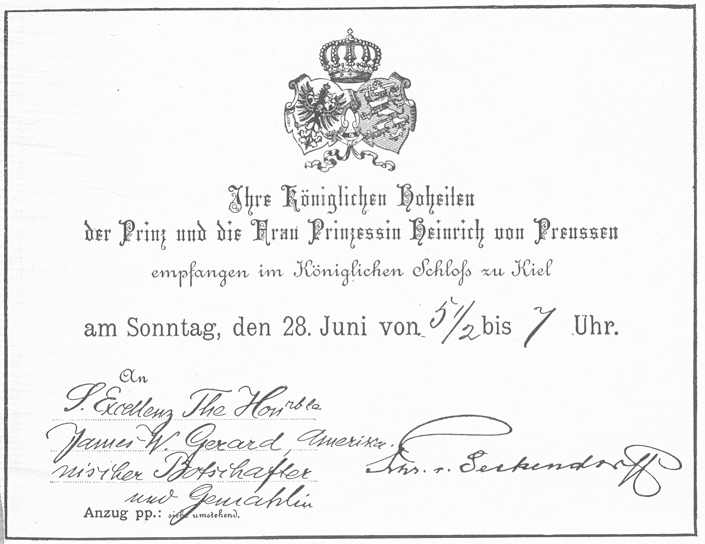 Ihre Königlichen Hoheiten
der Prinz und die Frau Prinzessin Heinrich von Preussen
empfangen im Königlichen Schloß zu Kiel
am Sonntag, den 28. Juni von 5 1/2 bis 7 Uhr.
An
S. Excellenz The Honrble
James W. Gerard, Amerika-
nischer Botschafter
und Gemahlin
Frhr. v. Seckendorff
Anzug pp.: siehe umstehend.